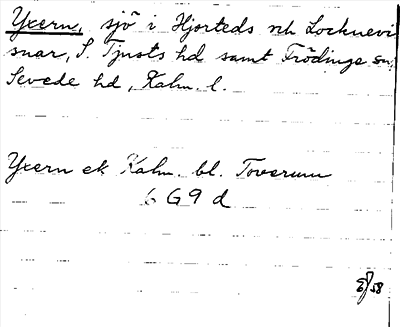 Yxern, sjö i Hjorteds och Locknevi
snar, S. Tjusts hd samt Frödinge sn,
Sevede hd, Kalm. l.
Yxern ek Kalm. bl. Toverum
6 G 9 d
58